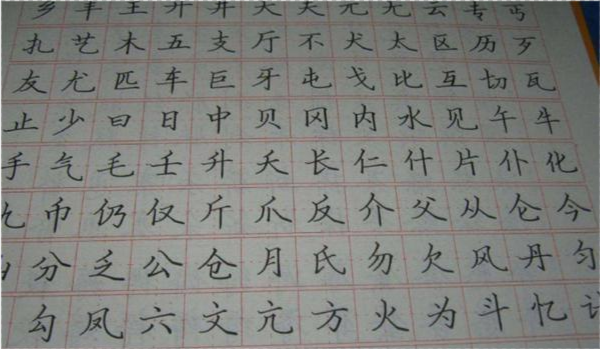 乡丰王开井天夫元无云专丐
扎艺木五支厅不犬太区历歹
友尤匹车巨牙屯戈比互切瓦
止少曰日中贝冈内水见午牛
手气毛壬升夭长仁什片仆化
币仍仅斤爪反介父从仑今
分乏公仓月氏勿欠风丹匀
勾凤六文亢方火为斗忆